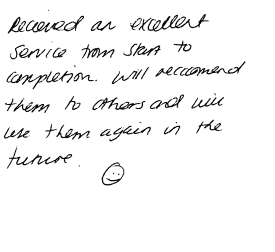 Received an excellent
service from start to
completion. Will reccomend
them to others and will
use them again in the
future. ☺